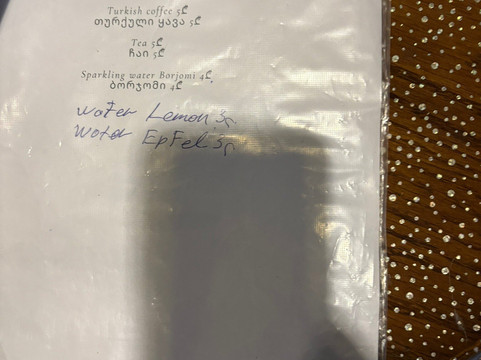 Turkish coffee 5₾
თურქული ყავა 5₾
Tea 5₾
ჩაი 5₾
Sparkling water Borjomi 4₾
ბორჯომი 4₾
water Lemon 3₾
water Epfel 3₾